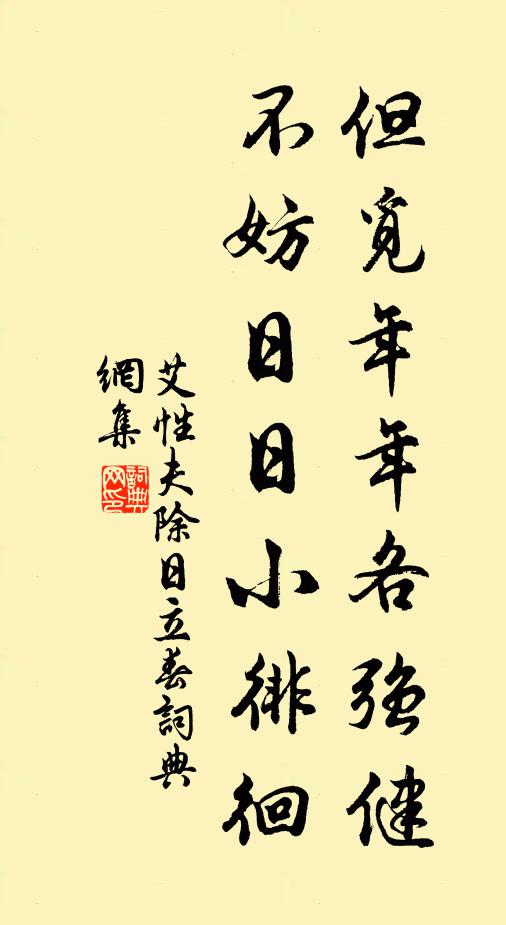 但覓年年各強健
不妨日日小徘徊
艾性夫除日立春詞典
網集
詞典
网印